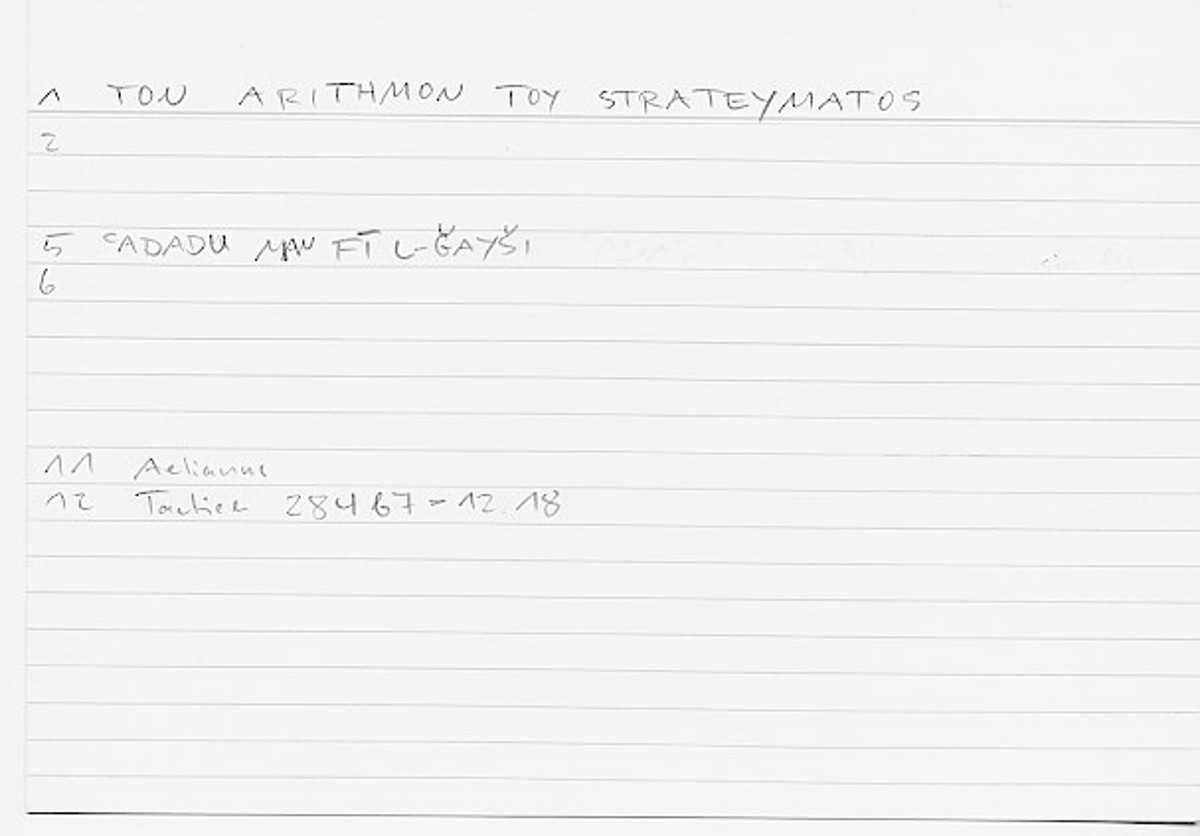 1 TON ARITHMON TOY STRATEYMATOS
2
5 ʿADADU MAN FĪ L-ǦAYŠI
6
11 Aelianus
12 Tactica 28467 = 12.18